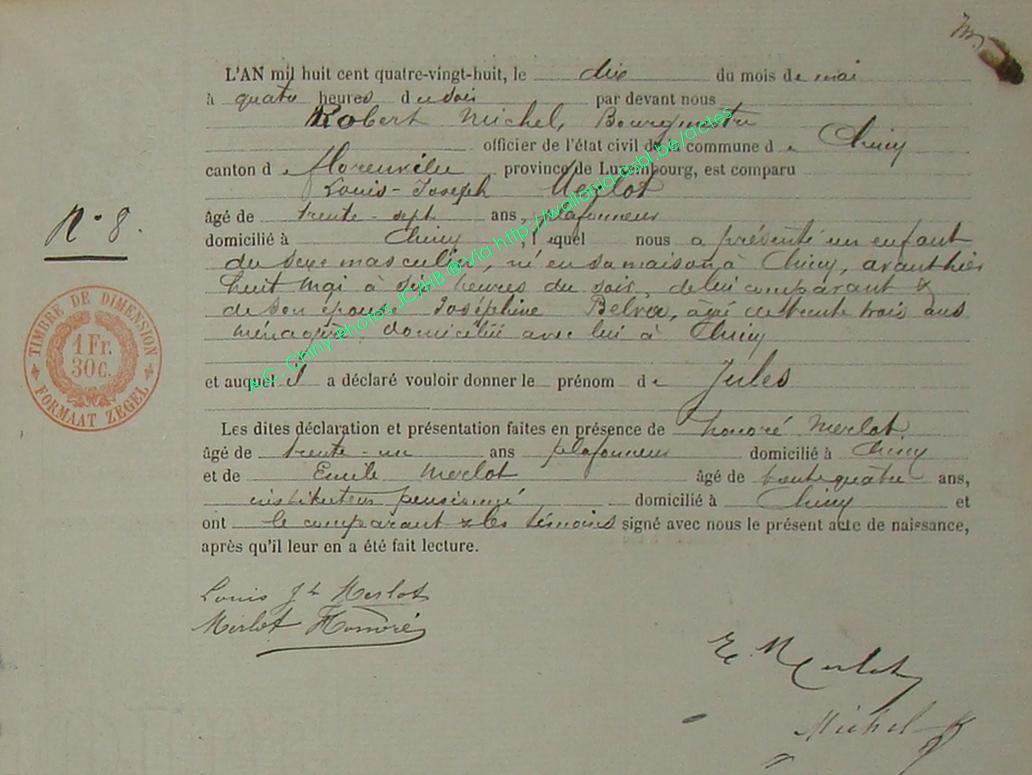 L'AN mil huit cent quatre-vingt-huit, le dix du mois de mai
à quatre heures du soir par devant nous
Robert Michel, Bourgmestre
officier de l'état civil de la commune de Chiny
canton de florenville province de Luxembourg, est comparu
Louis-Joseph Merlot
âgé de trente-sept ans, plafonneur
domicilié à Chiny, lequel nous a présenté un enfant
du sexe masculin, né en sa maison à Chiny, avant hier
huit mai à six heures du soir, de lui comparant &
de son épouse Joséphine Belva, âgée de trente trois ans
ménagère, domiciliée avec lui à Chiny
et auquel il a déclaré vouloir donner le prénom de Jules
Les dites déclaration et présentation faites en présence de honoré Merlot
âgé de trente-un ans plafonneur domicilié à Chiny
et de Emile Merlot âgé de trente quatre ans,
instituteur pensionné domicilié à Chiny et
ont le comparant & les témoins signé avec nous le présent acte de naissance,
après qu'il leur en a été fait lecture.
N° 8.
TIMBRE DE DIMENSION
1 Fr.
30 C.
FORMAAT ZEGEL
Louis Jh Merlot
Merlot Honoré
E. Merlot
Michel
A.C. Chiny photos JC/HB @ Via http://wallonia-asbl.be/actes